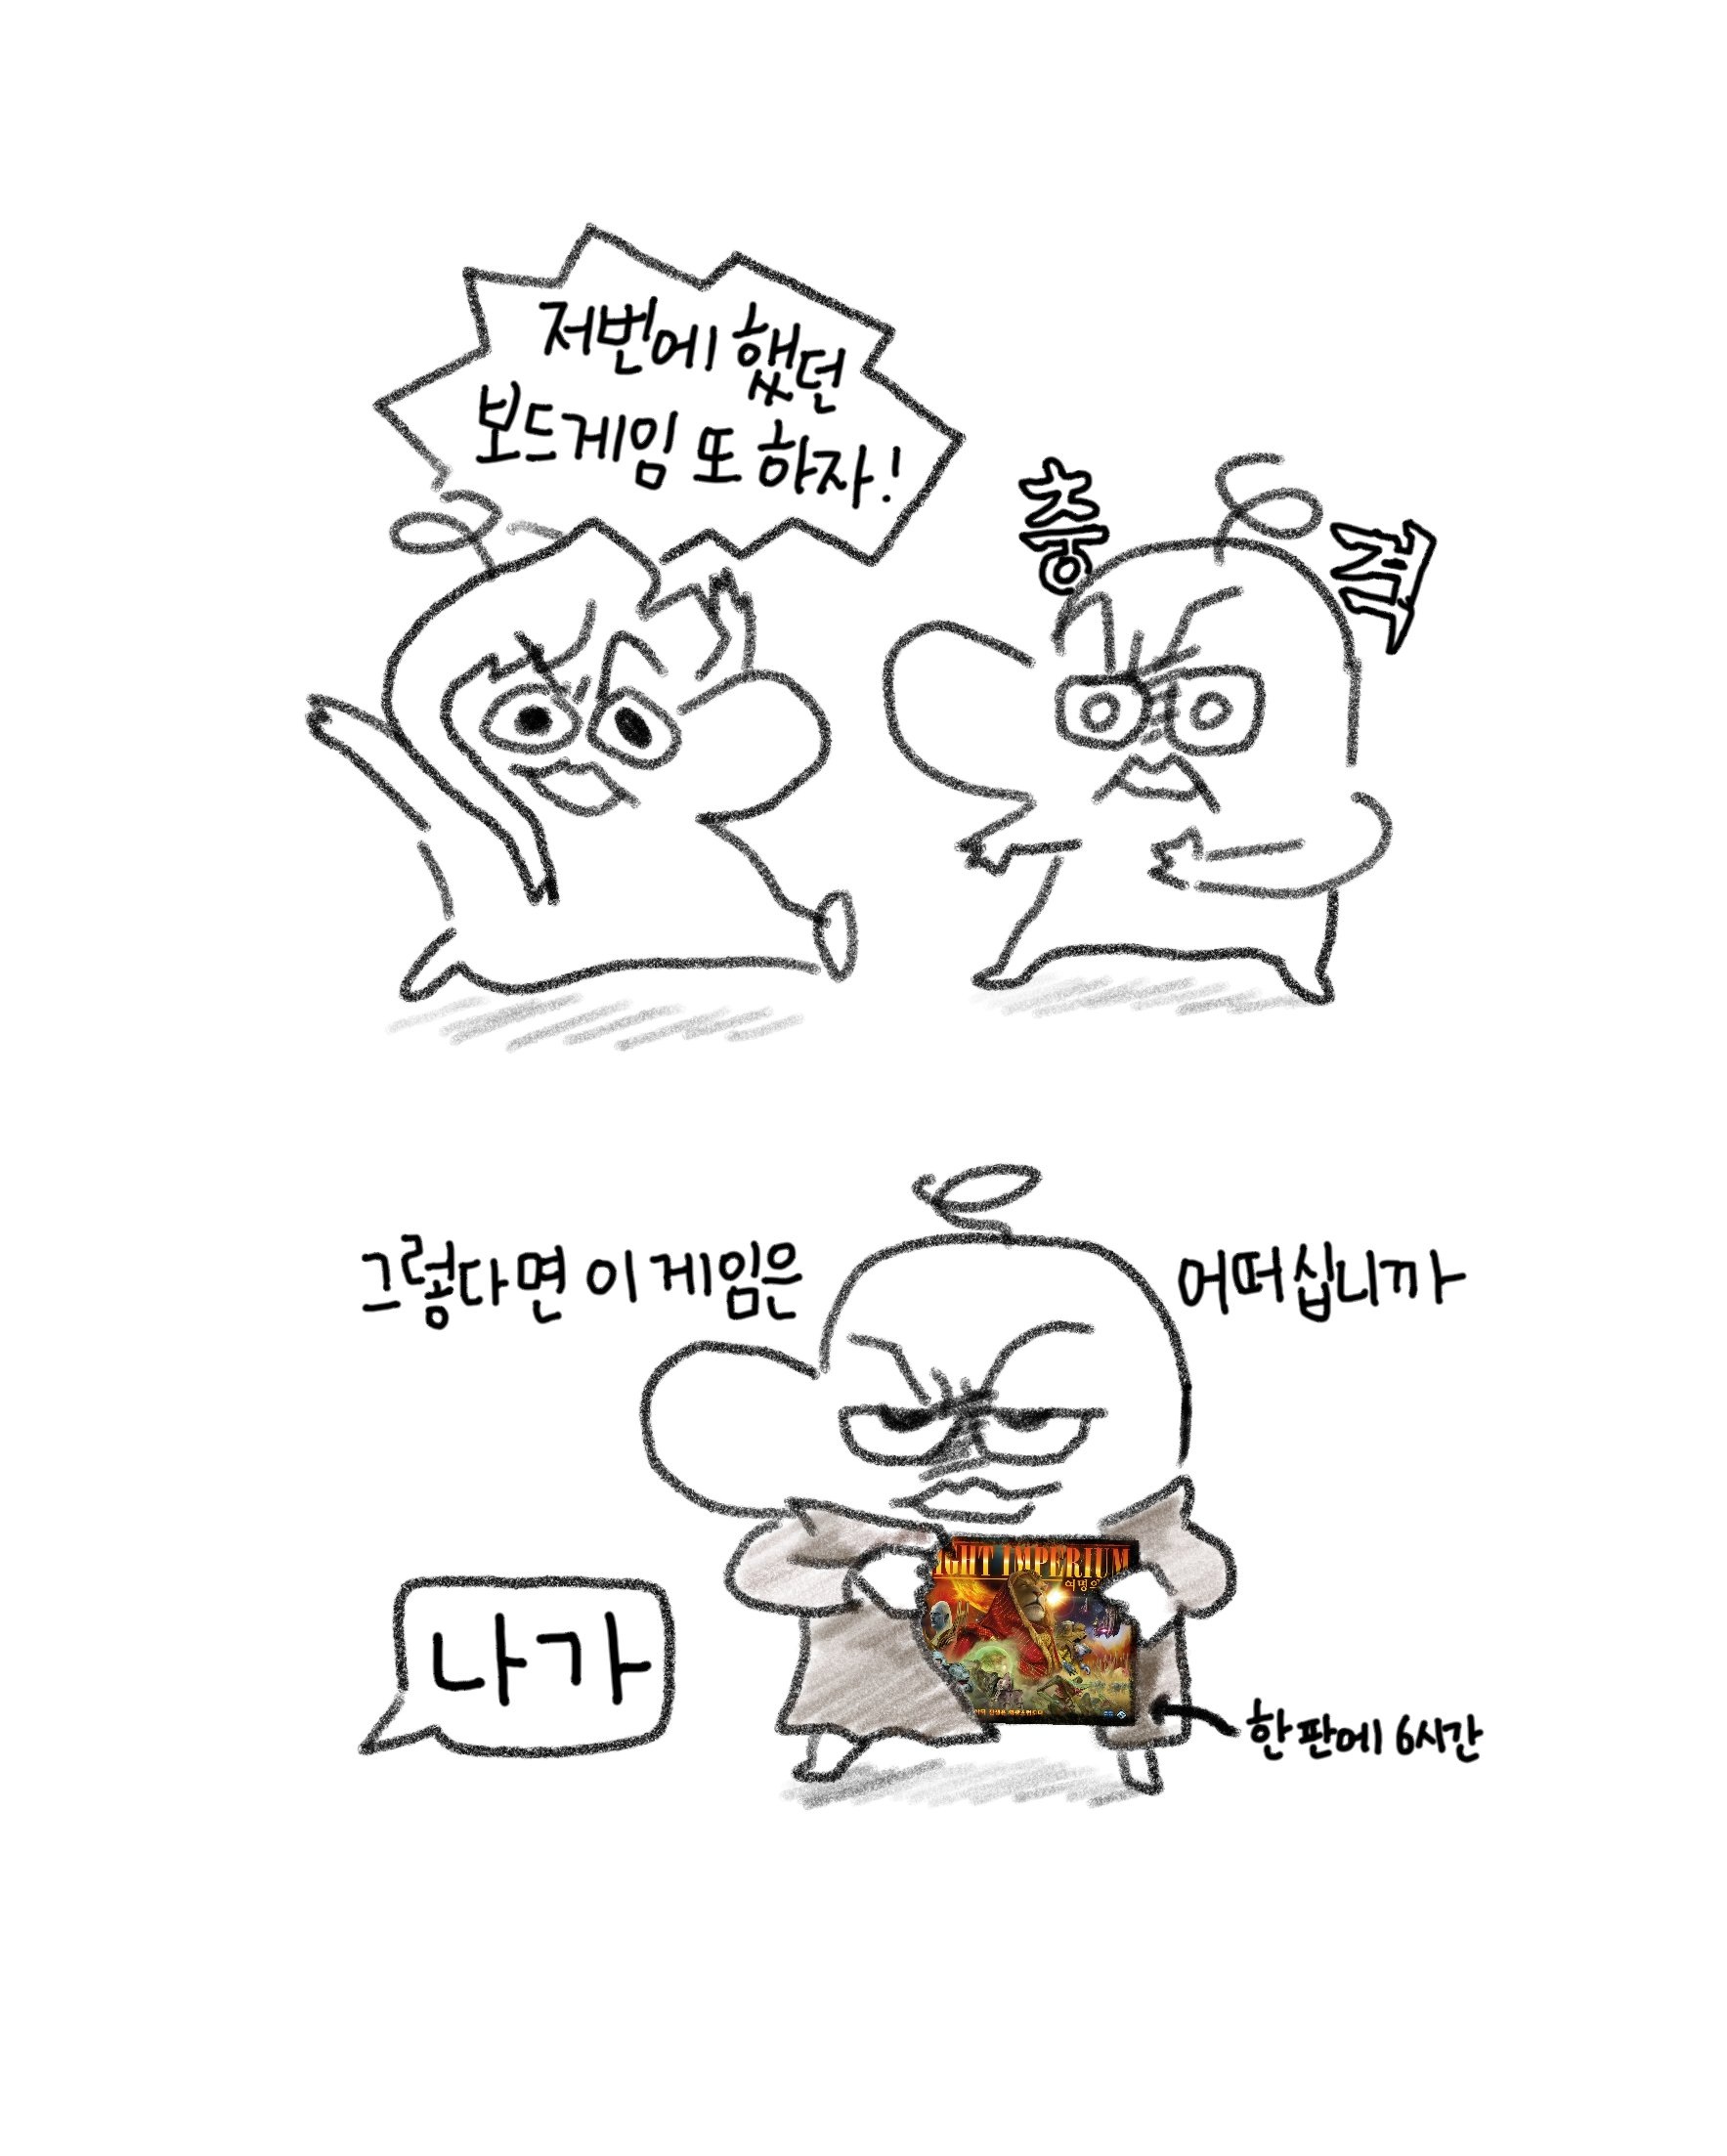 저번에 했던
보드게임 또 하자!
충격
그렇다면 이 게임은 어떠십니까
IGHT IMPERIUM
나가
한 판에 6시간